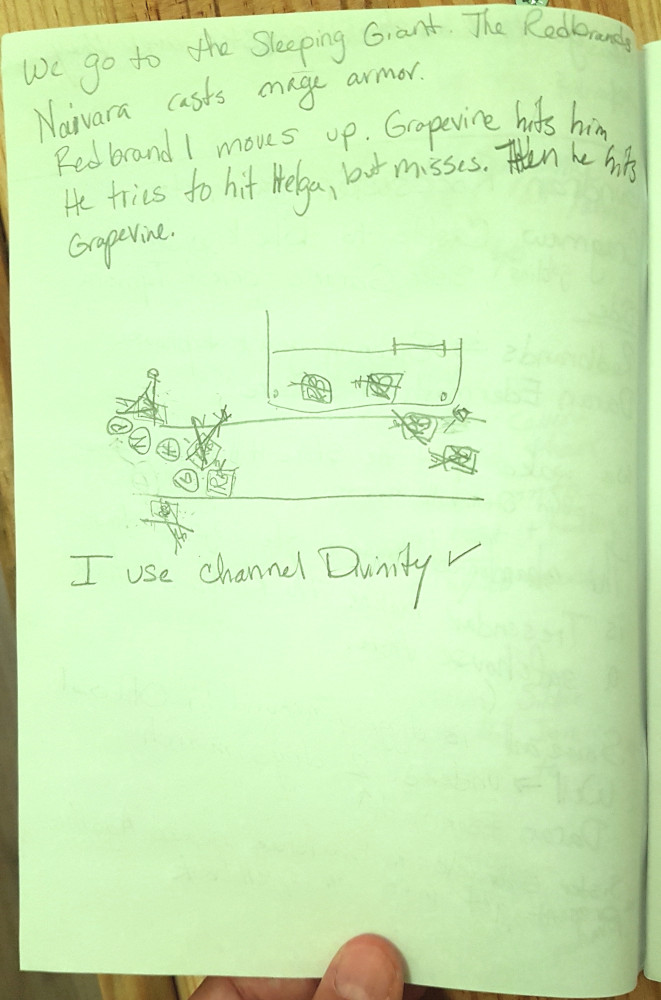 We go to the Sleeping Giant. The Redbrands
Naivara casts mage armor.
Redbrand 1 moves up. Grapevine hits him
He tries to hit Helga, but misses. Then he hits
Grapevine.
I use channel Divinity ✓